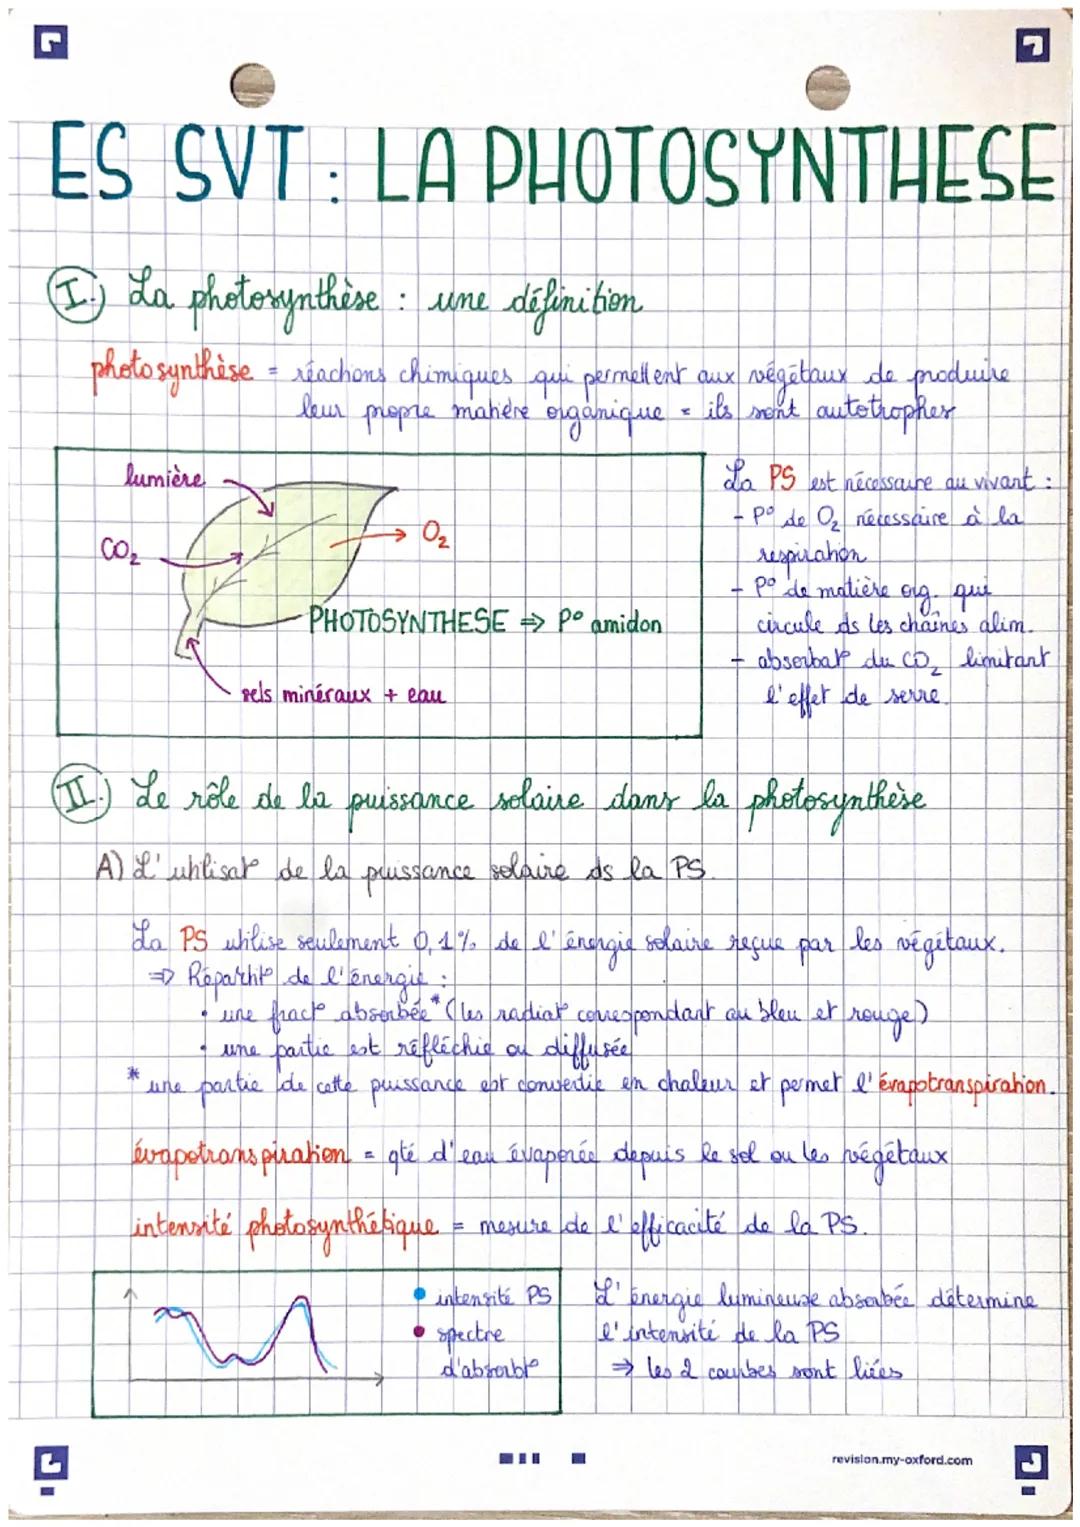 ES SVT : LA PHOTOSYNTHESE
I.) La photosynthèse : une définition
photosynthèse = réactions chimiques qui permettent aux végétaux de produire
leur propre matière organique = ils sont autotrophes
lumière
CO₂
O₂
PHOTOSYNTHESE ⇒ P° amidon
sels minéraux + eau
La PS est nécessaire au vivant :
- P° de O₂ nécessaire à la
respiration
- P° de matière org. qui
circule ds les chaînes alim.
- absorbat° du CO₂ limitant
l'effet de serre.
II.) Le rôle de la puissance solaire dans la photosynthèse
A) L'utilisat° de la puissance solaire ds la PS.
La PS utilise seulement 0,1% de l'énergie solaire reçue par les végétaux.
⇒ Répartit° de l'énergie :
• une fract° absorbée* (les radiat° correspondant au bleu et rouge)
• une partie est réfléchie ou diffusée
* une partie de cette puissance est convertie en chaleur et permet l'évapotranspiration.
évapotranspiration = qté d'eau évaporée depuis le sol ou les végétaux
intensité photosynthétique = mesure de l'efficacité de la PS.
• intensité PS
• spectre
d'absorbt°
L'énergie lumineuse absorbée détermine
l'intensité de la PS
⇒ les 2 courbes sont liées
revision.my-oxford.com